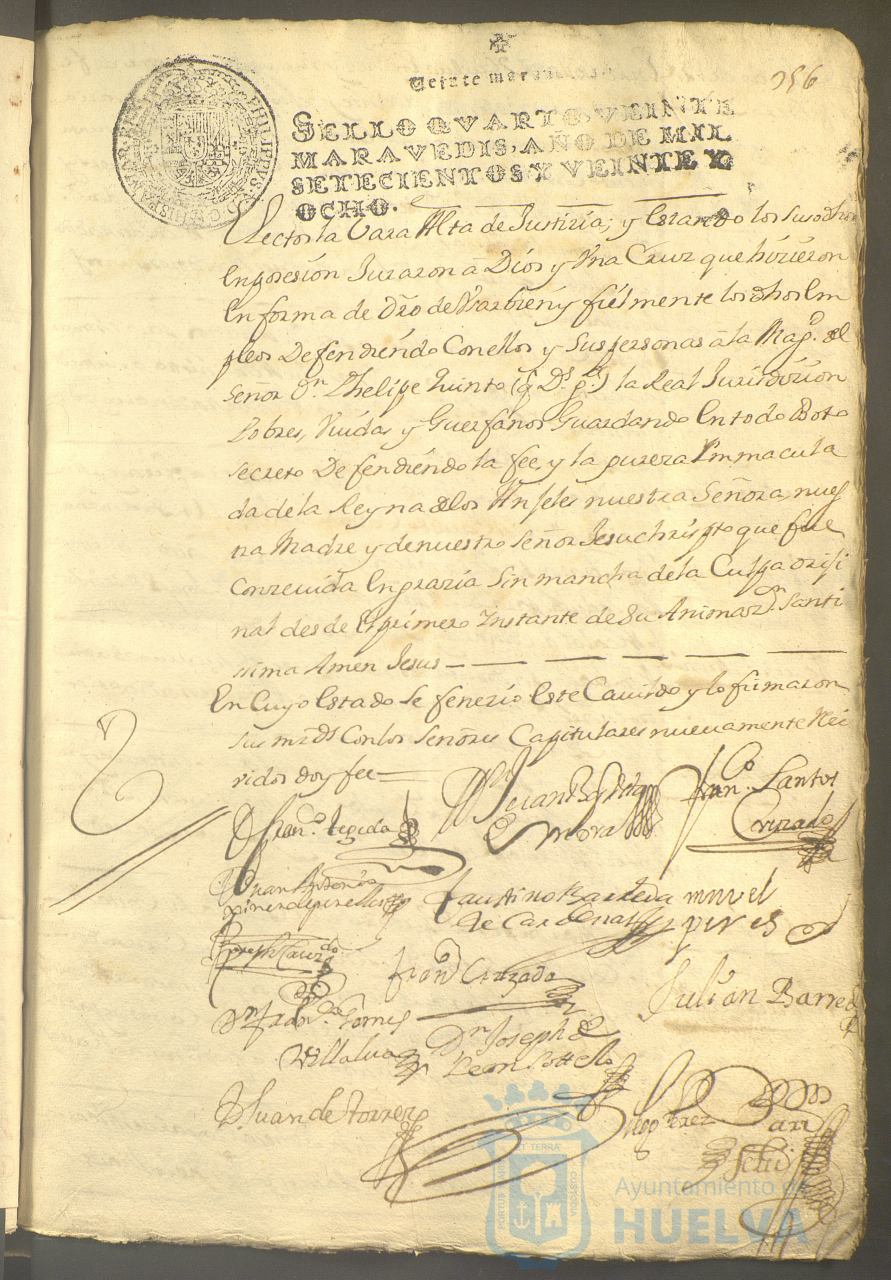 Veinte mara
256
SELLO QVARTO, VEINTE
MARAVEDIS, AÑO DE MIL
SETECIENTOS Y VEINTE Y
OCHO.
PHILIPPVS V D G HISPANIAR REX
Rectos la Vara Alta de Justizia; y Estando los susodhos
En posesion Juraron â Dios y Vna Cruz que hizieron
En forma de Dro de Vsar bien y fielmente los dhos Em
pleos Defendiendo Con ellos y sus personas â la Magd. del
Señor Dn. Phelipe Quinto (q Ds. ge.) la Real Jurisdizion
Pobres, Viudas y Guerfanos Guardando En todo Boto
secreto Defendiendo la fee, y la pureza Ynmacula
da de la Reyna de los Anjeles nuestra Señora, nues
tra Madre y de nuestro Señor Jesuchristo que fue
Conzevida En grazia sin mancha de la Culpa oriji
nal desde El primero Instante de su Animazon. Santi
sima Amen Jesus
En Cuyo Estado se fenezio Este Cavildo y lo firmaron
sus mrds Con los Señores Capitulares nuevamente Rei
vidos doy fee
Dn Juan Bapta
Mora
Franco. Santos
Cruzado
D Franco. tegida
Juan Antonio
Faustino Barreda
de Cardenas
mnvel
peres
Joseph
franco Cruzado
Julian Barreda
Dn. Franco. Gomes
Villalva
Dn. Joseph de
Leon Sottelo
D. Juan de torres
Diego Perez
Barr
Scriu.
PORTUS MARIS ET TERRÆ CUSTODIA
Ayuntamiento de
HUELVA